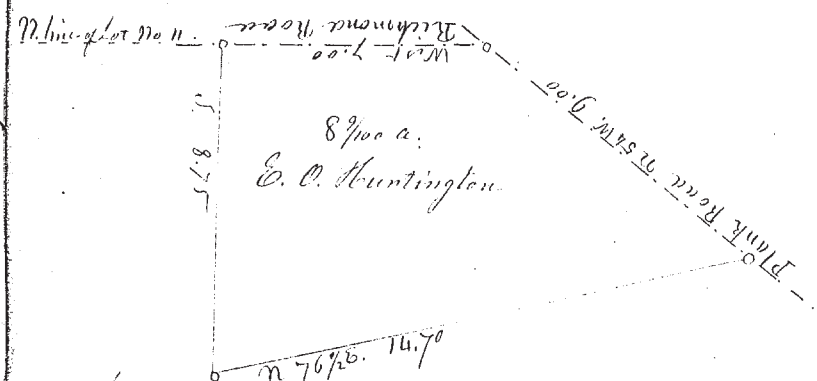 N. line of Lot No 11.
Richmond Road
West 7.00
Plank Road N 54 W. 9.00
S. 8.75
8 9/100 a.
E. O. Huntington
N 76 1/2 E. 14.70